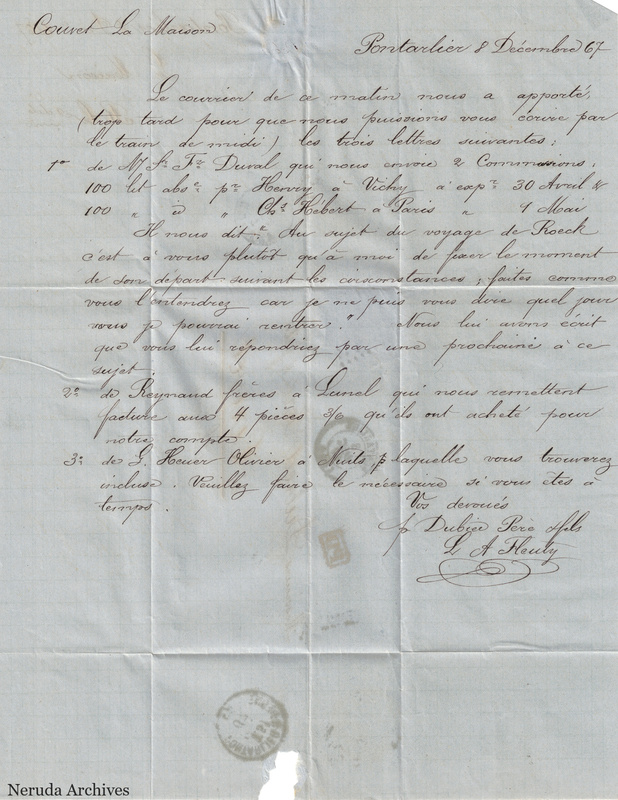 Couvet La Maison
Pontarlier 8 Décembre 67
Le courrier de ce matin nous a apporté,
(trop tard pour que nous puissions vous écrire par
le train de midi) les trois lettres suivantes;
1o de Mr Duval qui nous envoie 2 Commissions,
100 lit abse pr Henry à Vichy à expr 30 Avril &
100 " id " Chs Hébert à Paris " 1 Mai
Il nous dit " Au sujet du voyage de Roeck
c'est à vous plutot qu'à moi de fixer le moment
de son départ suivant les circonstances; faites comme
vous l'entendrez car je ne puis vous dire quel jour
je pourrai rentrer." Nous lui avons écrit
que vous lui répondriez par une prochaine à ce
sujet.
2o de Reynaud frères à Lunel qui nous remettent
facture aux 4 pièces 3/6 qu'ils ont acheté pour
notre compte.
3o de G. Heuer Olivier à Nuits laquelle vous trouverez
incluse. Veuillez faire le nécessaire si vous êtes à
temps.
Vos devoués
p Dubied Pere & fils
L A
Neruda Archives